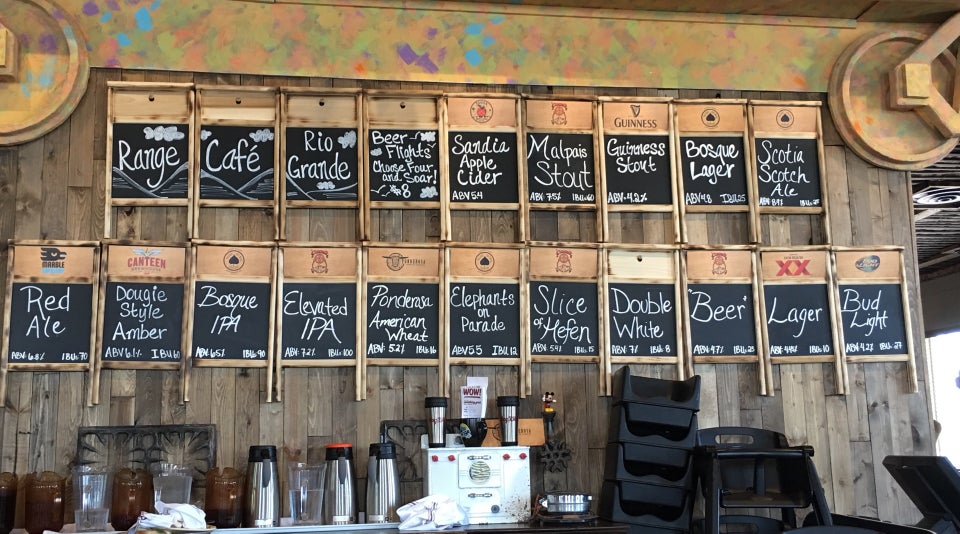 Range
Café
Rio
Grande
Beer
Flights
Choose Four
and Soar!
$8
Sandia
Apple
Cider
ABV 5.4
Malpais
Stout
ABV: 7.5% IBU: 60
GUINNESS
Guinness
Stout
ABV: 4.2%
Bosque
Lager
ABV 4.8 IBU: 25
Scotia
Scotch
Ale
MARBLE
Red
Ale
ABV: 6.8% IBU: 70
CANTEEN
Dougie
Style
Amber
ABV 6.1% IBU 60
Bosque
IPA
ABV: 6.5% IBU: 90
Elevated
IPA
ABV: 7.2% IBU: 100
PONDEROSA
Ponderosa
American
Wheat
ABV: 5.2% IBU: 16
Elephants
on
Parade
ABV 5.5 IBU 12
Slice
of Hefen
ABV: 5.4% IBU: 15
Double
White
ABV: 7% IBU: 8
"Beer"
ABV: 4.7% IBU: 25
XX
Lager
IBU: 10
BUD
LIGHT
Bud
Light
ABV: 4.2% IBU: 27
WOW!